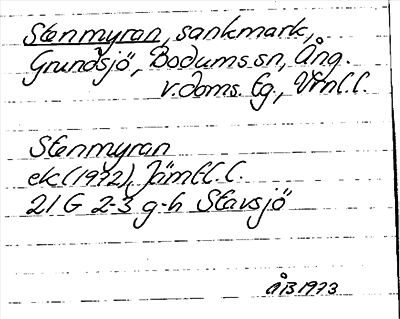 Stenmyran, sankmark,
Grundsjö, Bodums sn, Ång.
v.doms. Eg., Vrnl.l.
Stenmyran
ek (1972), Jämtl.l.
21 G 2-3 g-h Stavsjö
ÅB 1973